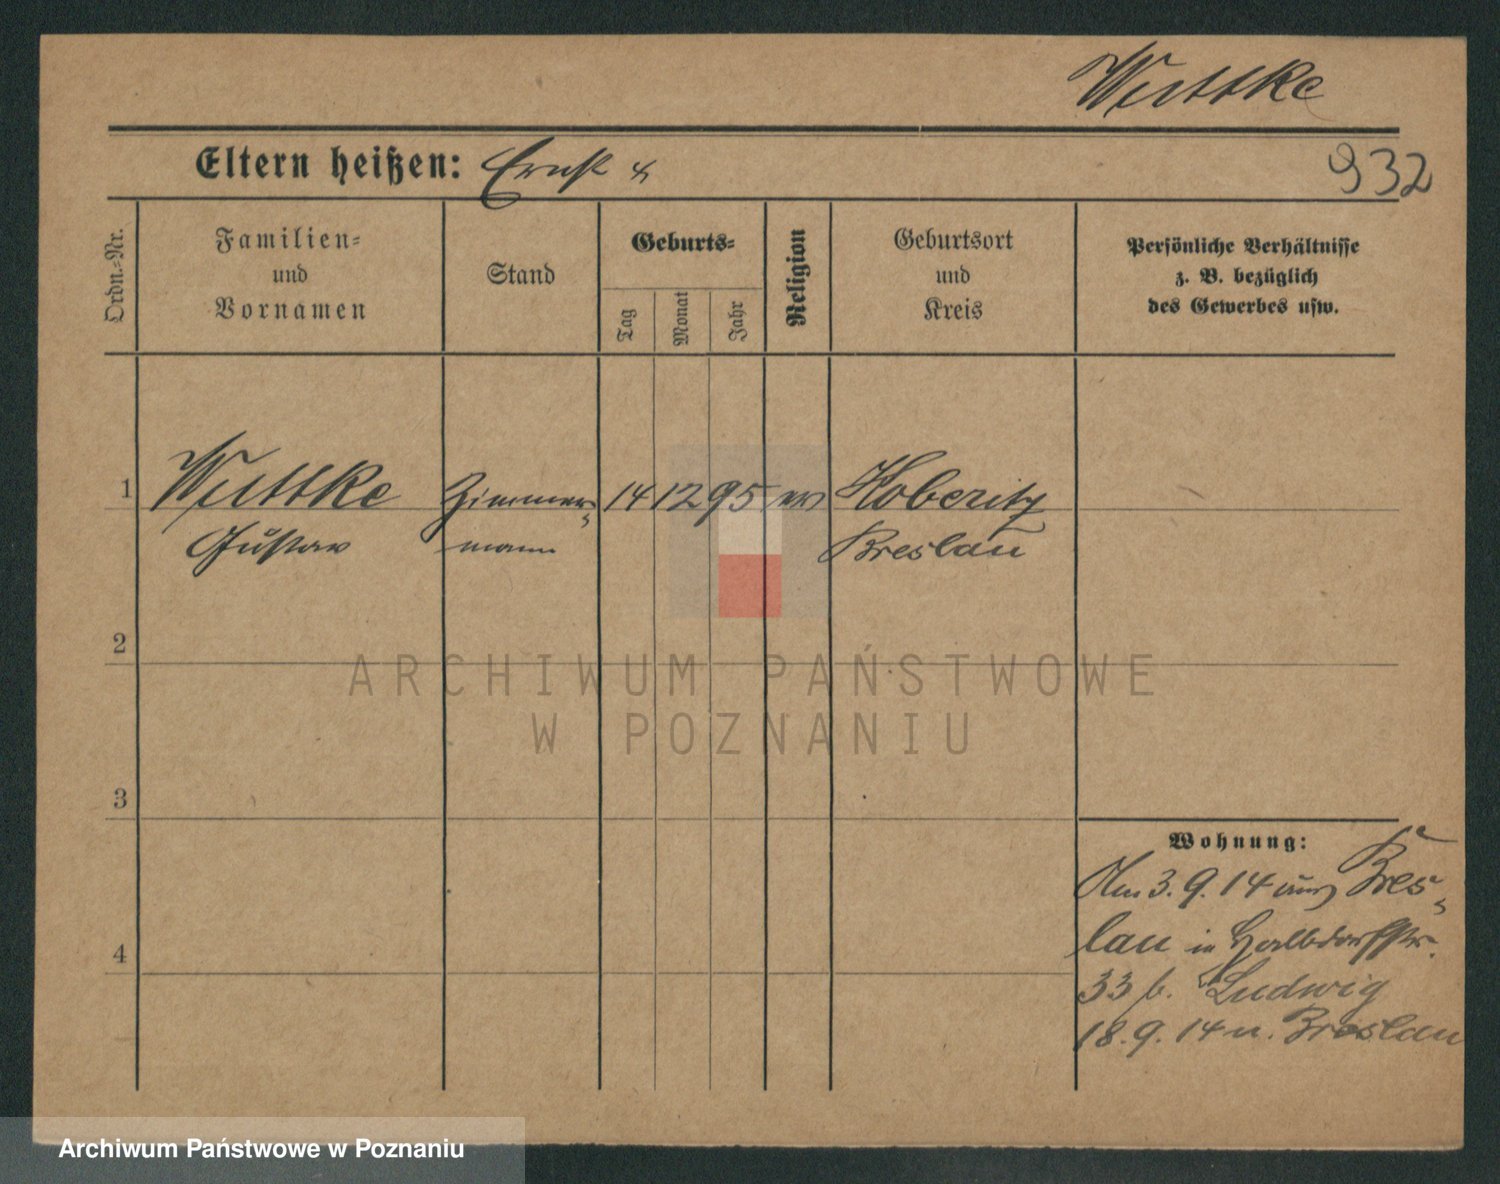 Wuttke
Eltern heißen: Ernst &
932
Ordn.-Nr.
Familien-
und
Vornamen
Stand
Geburts-
Tag
Monat
Jahr
Religion
Geburtsort
und
Kreis
Persönliche Verhältnisse
z. B. bezüglich
des Gewerbes usw.
1 Wuttke Zimmer- 14 12 95 ev Koberitz
Gustav mann Breslau
2
3
4
Wohnung:
Am 3. 9. 14 aus Bres-
lau in Halbdorfstr.
33 b. Ludwig
18. 9. 14 n. Breslau
ARCHIWUM PAŃSTWOWE
W POZNANIU
Archiwum Państwowe w Poznaniu